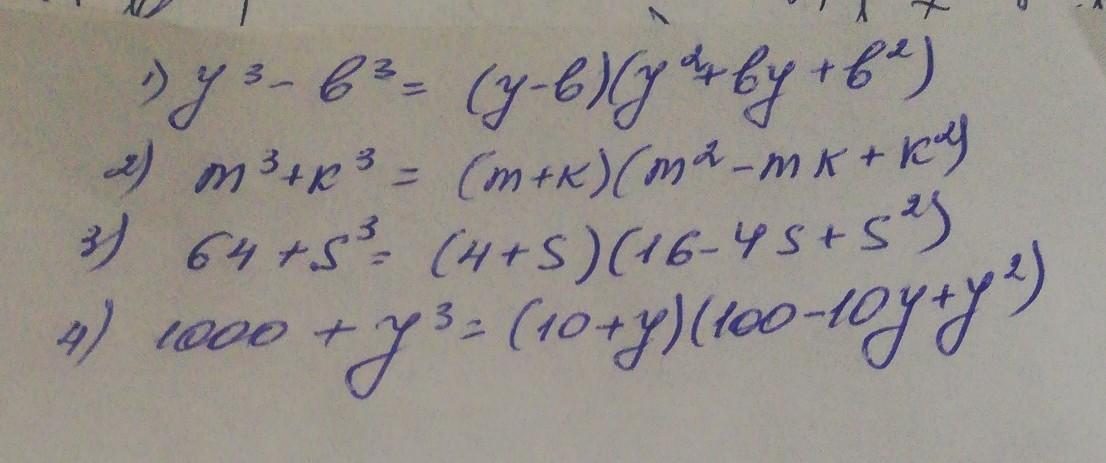 1) y³ - b³ = (y-b)(y²+by+b²)
2) m³+k³ = (m+k)(m²-mk+k²)
3) 64+s³ = (4+s)(16-4s+s²)
4) 1000 + y³ = (10+y)(100-10y+y²)